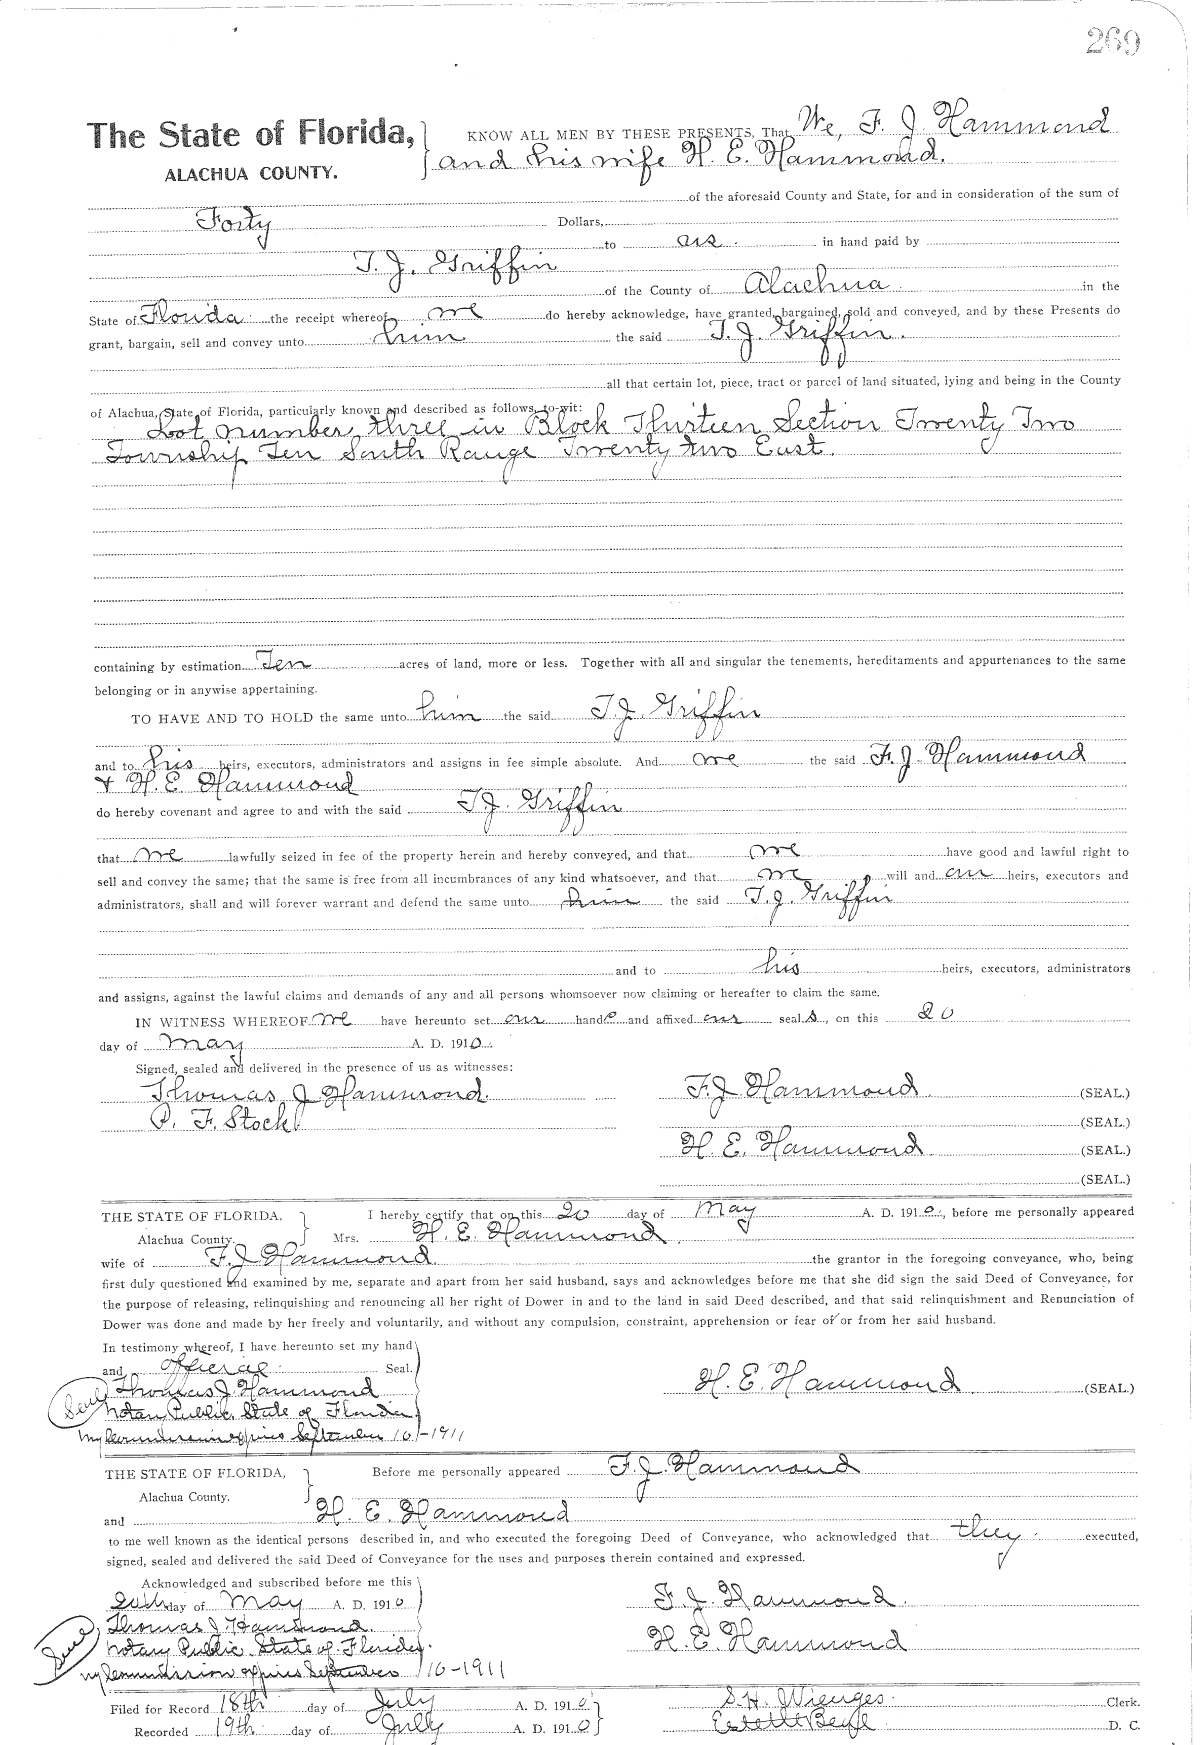 269
The State of Florida, KNOW ALL MEN BY THESE PRESENTS, That We, F. J Hammond
ALACHUA COUNTY. and his wife H. E. Hammond.
of the aforesaid County and State, for and in consideration of the sum of
Forty Dollars,
to us in hand paid by
T. J. Griffin
of the County of Alachua in the
State of Florida the receipt whereof we do hereby acknowledge, have granted, bargained, sold and conveyed, and by these Presents do
grant, bargain, sell and convey unto him the said T. J. Griffin.
all that certain lot, piece, tract or parcel of land situated, lying and being in the County
of Alachua, State of Florida, particularly known and described as follows, to-wit:
Lot number three in Block Thirteen Section Twenty Two
Township Ten South Range Twenty two East.
containing by estimation Ten acres of land, more or less. Together with all and singular the tenements, hereditaments and appurtenances to the same
belonging or in anywise appertaining.
TO HAVE AND TO HOLD the same unto him the said T. J. Griffin
and to his heirs, executors, administrators and assigns in fee simple absolute. And we the said F. J. Hammond
& H. E. Hammond
do hereby covenant and agree to and with the said T J. Griffin
that we lawfully seized in fee of the property herein and hereby conveyed, and that we have good and lawful right to
sell and convey the same; that the same is free from all incumbrances of any kind whatsoever, and that we will and our heirs, executors and
administrators, shall and will forever warrant and defend the same unto him the said T. J. Griffin
and to his heirs, executors, administrators
and assigns, against the lawful claims and demands of any and all persons whomsoever now claiming or hereafter to claim the same.
IN WITNESS WHEREOF we have hereunto set our hands and affixed our seals, on this 20
day of May A. D. 1910.
Signed, sealed and delivered in the presence of us as witnesses:
Thomas J Hammond. F. J Hammond (SEAL.)
P. F. Stock (SEAL.)
H. E. Hammond (SEAL.)
(SEAL.)
THE STATE OF FLORIDA, I hereby certify that on this 20 day of May A. D. 1910., before me personally appeared
Alachua County. Mrs. H. E. Hammond
wife of F. J Hammond the grantor in the foregoing conveyance, who, being
first duly questioned and examined by me, separate and apart from her said husband, says and acknowledges before me that she did sign the said Deed of Conveyance, for
the purpose of releasing, relinquishing and renouncing all her right of Dower in and to the land in said Deed described, and that said relinquishment and Renunciation of
Dower was done and made by her freely and voluntarily, and without any compulsion, constraint, apprehension or fear of or from her said husband.
In testimony whereof, I have hereunto set my hand
and official Seal.
Seal Thomas J. Hammond H. E. Hammond (SEAL.)
Notary Public, State of Florida
My Commission expires September 10-1911
THE STATE OF FLORIDA, Before me personally appeared F. J. Hammond
Alachua County.
and H. E. Hammond
to me well known as the identical persons described in, and who executed the foregoing Deed of Conveyance, who acknowledged that they executed,
signed, sealed and delivered the said Deed of Conveyance for the uses and purposes therein contained and expressed.
Acknowledged and subscribed before me this
20th day of May A. D. 1910 F. J. Hammond
Seal Thomas J. Hammond H. E. Hammond
Notary Public. State of Florida.
My Commission expires September 10-1911
Filed for Record 18th day of July A. D. 1910 S. H. Wienges Clerk.
Recorded 19th day of July A. D. 1910 Estelle D. C.